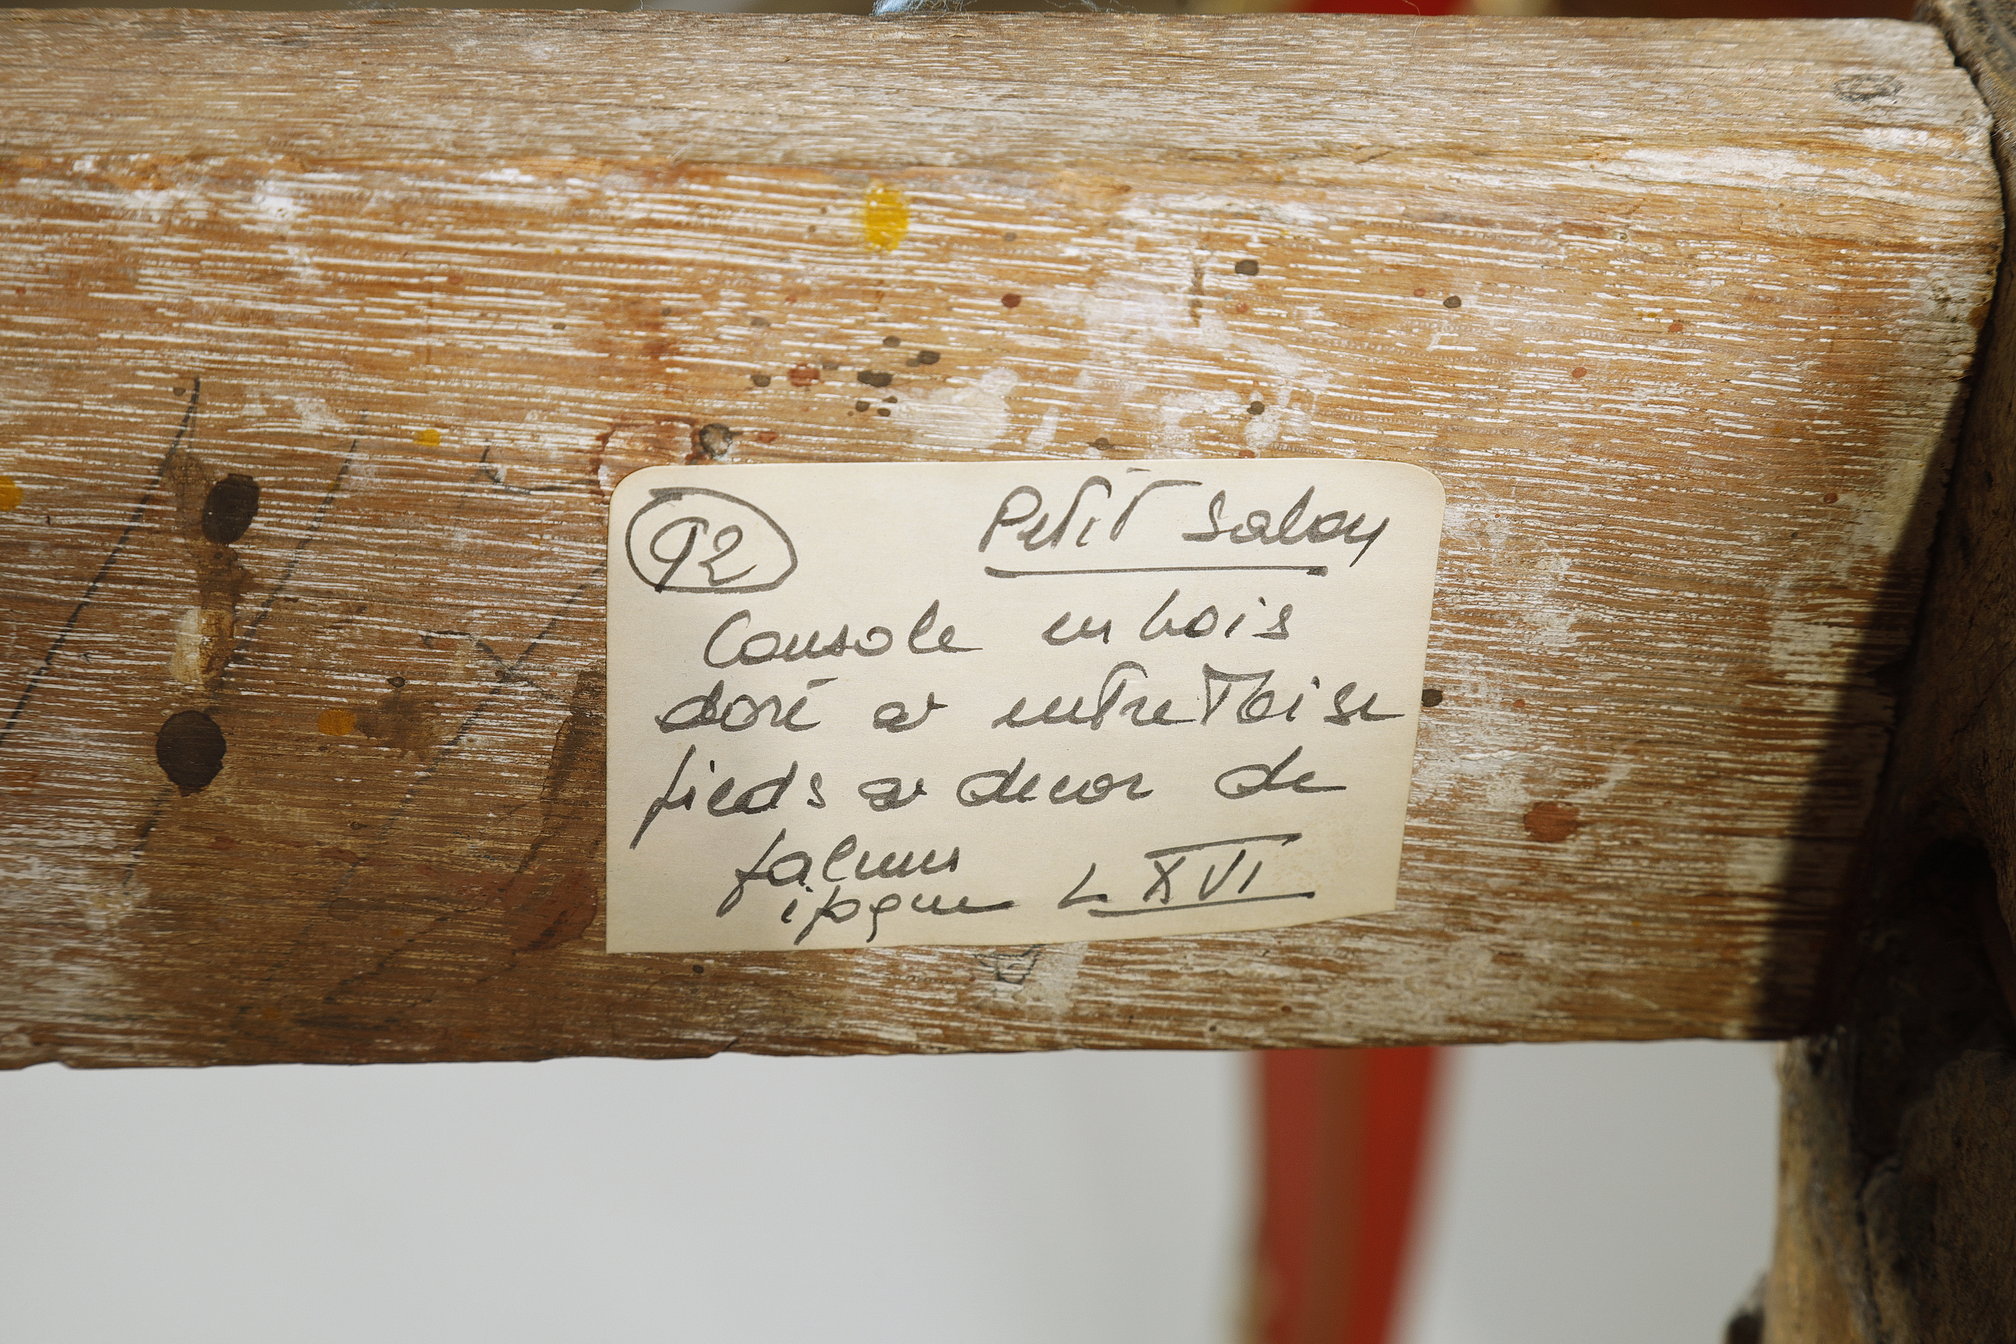 92
Petit Salon
Console en bois
doré av entretoise
pieds av decor de
époque L XVI